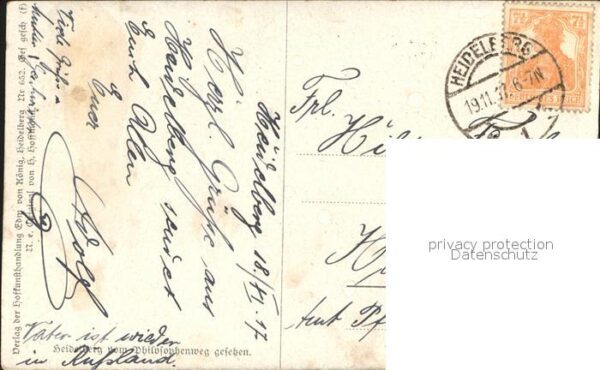 Heidelberg 18/XI. 17
Herzl. Grüße aus
Heidelberg sendet
Euch Allen
Euer
Adolf
Viele Grüße
Vater ist wieder
in Rußland.
Heidelberg vom Philosophenweg gesehen.
Verlag der Hofkunsthandlung Edm. von König, Heidelberg Nr 652. Ges gesch (f)
N. e. Original von H. Hoffmann
HEIDELBERG
19.11.17.6-7N.
1
7½
7½
DEUTSCHES REICH
Frl.
Amt
privacy protection
Datenschutz